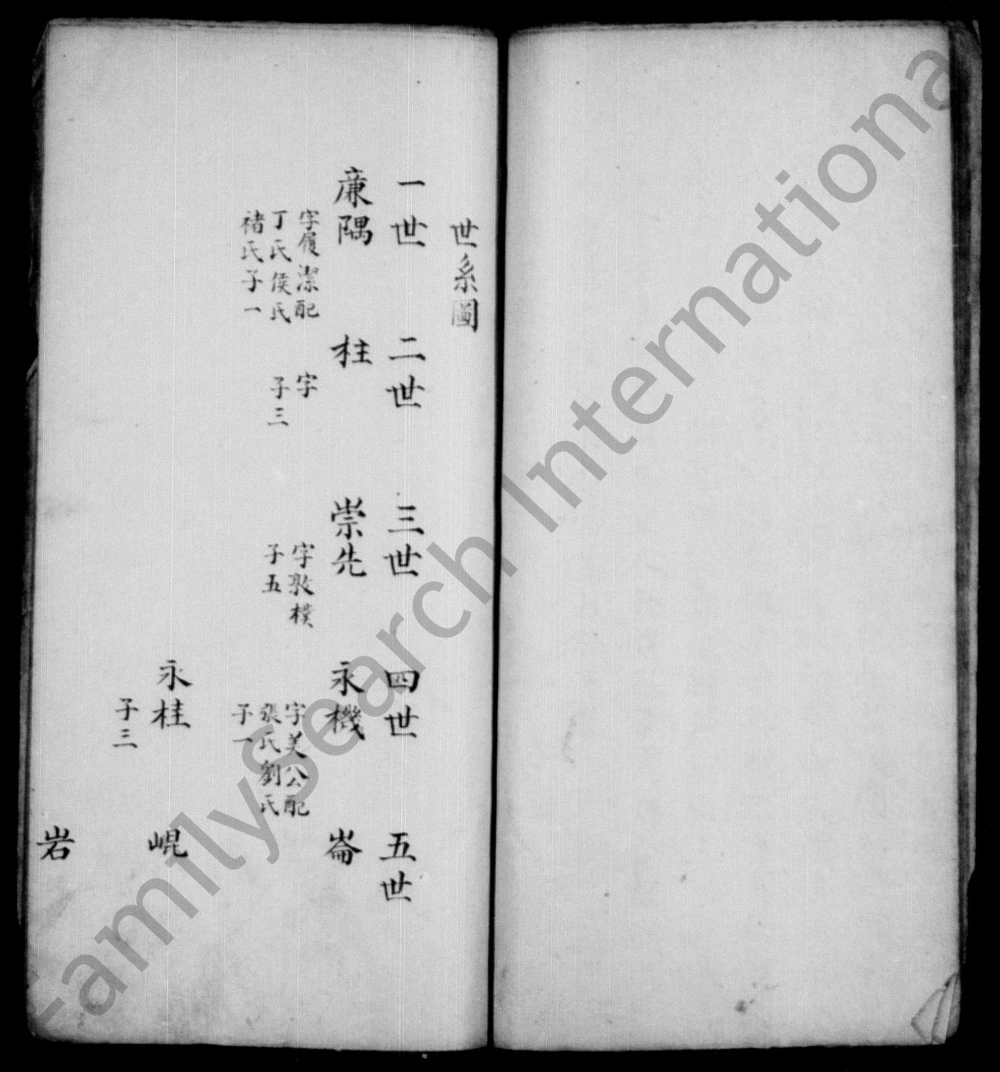 世系圖
一世 二世 三世 四世 五世
廉隅 柱 崇先 永機 崙
字履潔配
丁氏侯氏
褚氏子一
字
子三
字敦樸
子五
字美公配
張氏劉氏
子一
永桂 崐
子三
岩
FamilySearch International